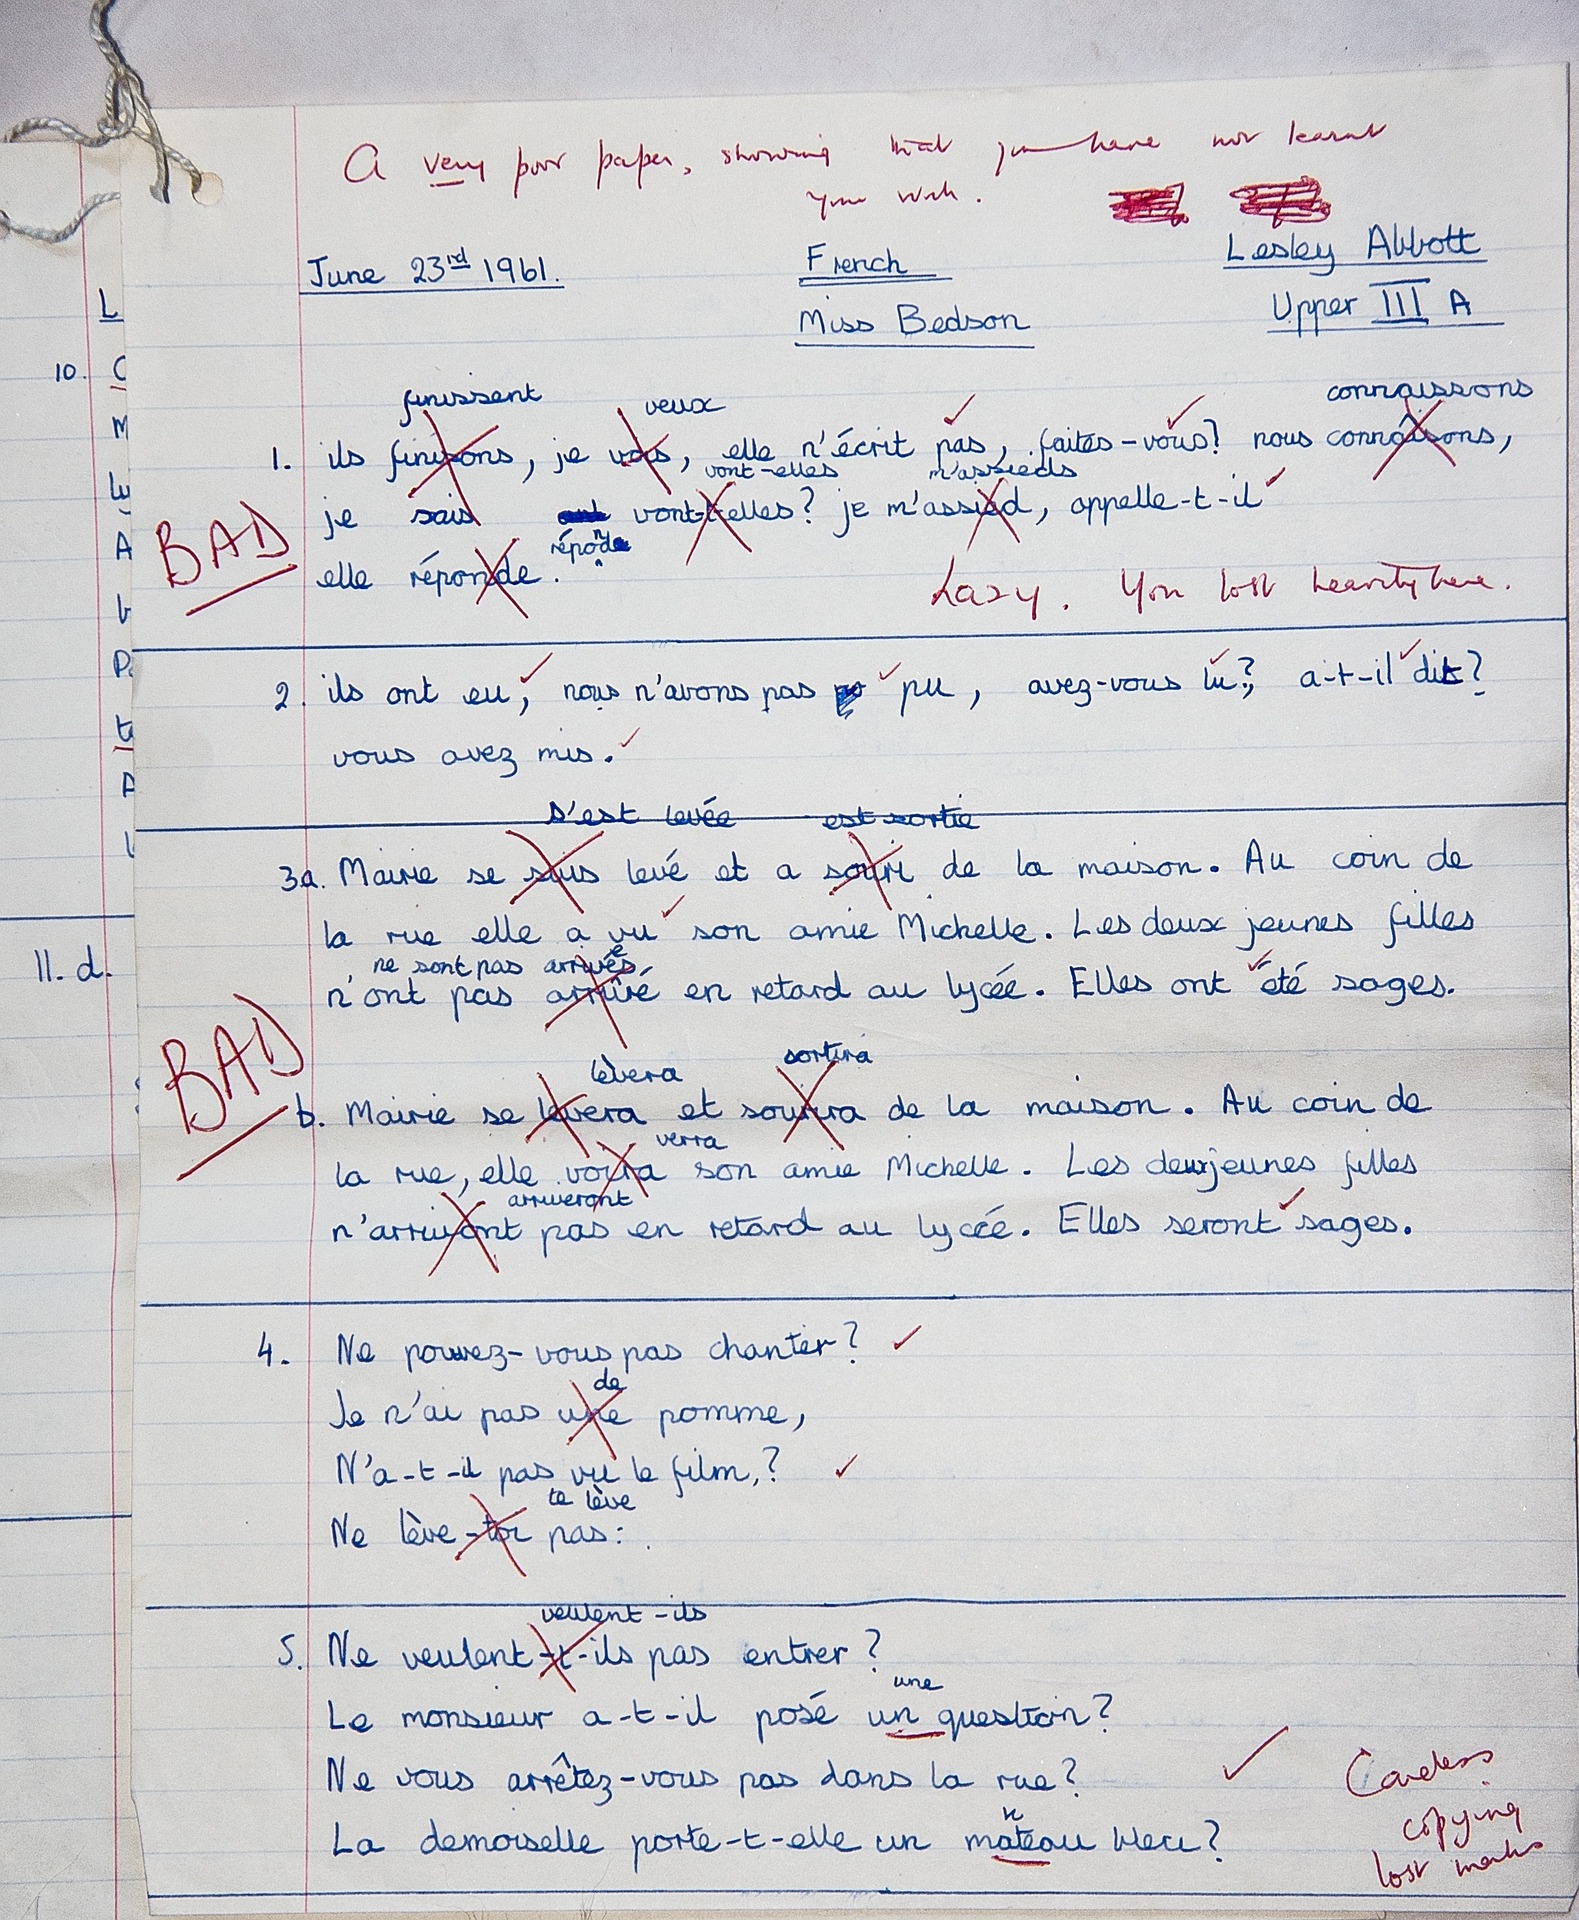 A very poor paper, showing that you have not learnt
your work.
June 23rd 1961. French Lesley Abbott
Miss Bedson Upper III A
L
10. C
M
A
finissent veux connaissons
1. ils finisons, je vois, elle n'écrit pas, faites-vous? nous connaîsons,
vont-elles m'assieds
je sais vont-t-elles? je m'assied, appelle-t-il
BAD
réponde
elle réponde.
Lazy. You lost heavily here.
2. ils ont eu, nous n'avons pas pu, avez-vous lu?, a-t-il dit?
vous avez mis.
s'est levée est sortie
3a. Mairie se suis levé et a souri de la maison. Au coin de
la rue elle a vu son amie Michelle. Les deux jeunes filles
ne sont pas arrivées
n'ont pas arrivé en retard au lycée. Elles ont été sages.
11. d.
BAD
lèvera sortira
b. Mairie se levera et sourira de la maison. Au coin de
verra
la rue, elle voira son amie Michelle. Les deux jeunes filles
arriveront
n'arrivont pas en retard au lycée. Elles seront sages.
4. Ne pouvez-vous pas chanter?
de
Je n'ai pas une pomme,
N'a-t-il pas vu le film,?
te lève
Ne lève-toi pas:.
veulent-ils
5. Ne veulent-t-ils pas entrer?
une
Le monsieur a-t-il posé un question?
Ne vous arrêtez-vous pas dans la rue?
n
La demoiselle porte-t-elle un mateau bleu?
Careless
copying
lost marks